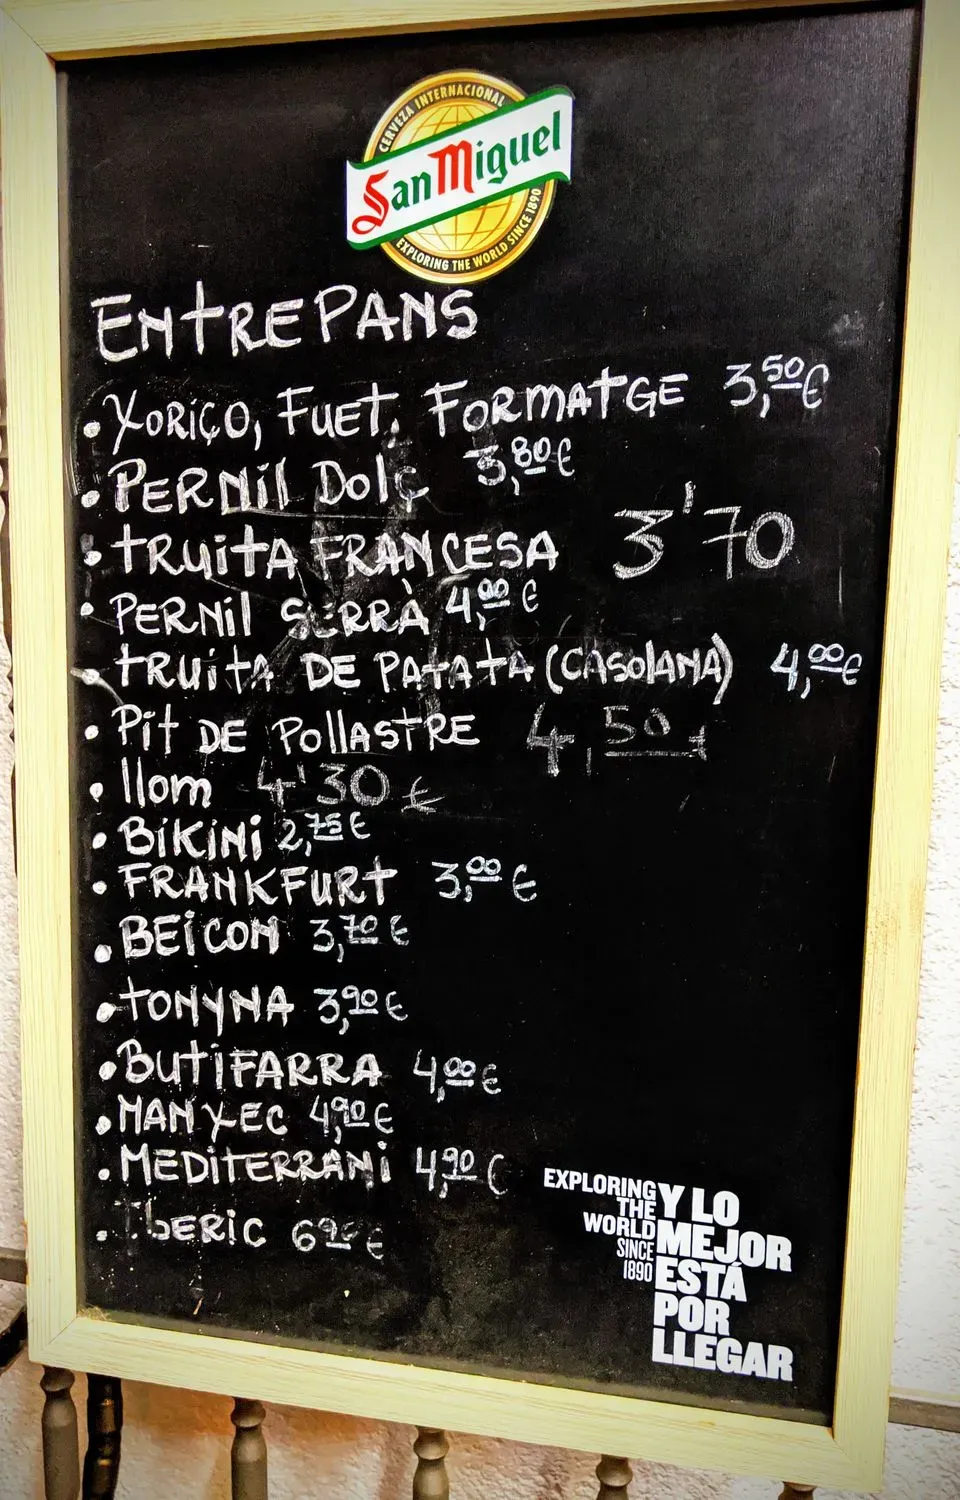 CERVEZA INTERNACIONAL
San Miguel
EXPLORING THE WORLD SINCE 1890
ENTREPANS
• XORIÇO, FUET, FORMATGE 3,50€
• PERNIL DOLÇ 3,80€
• TRUITA FRANCESA 3'70
• PERNIL SERRÀ 4,00€
• TRUITA DE PATATA (CASOLANA) 4,00€
• PIT DE POLLASTRE 4,50€
• llom 4'30€
• BIKINI 2,75€
• FRANKFURT 3,00€
• BEICON 3,70€
• TONYNA 3,90€
• BUTIFARRA 4,00€
• MANXEC 4,90€
• MEDITERRANI 4,90€
• IBERIC 6,90€
EXPLORING THE WORLD SINCE 1890
Y LO
MEJOR
ESTÁ
POR
LLEGAR